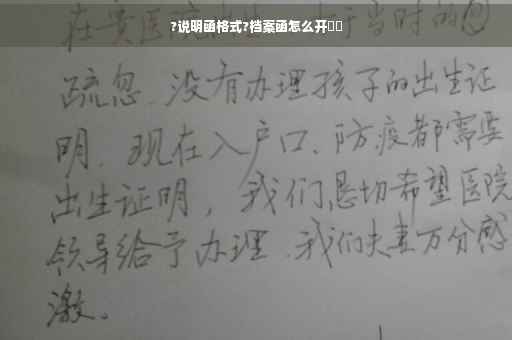 ?说明函格式?档案函怎么开
在贵医 于当时的
疏忽、没有办理孩子的出生证
明、现在入户口、防疫都需要
出生证明，我们恳切希望医院
领导给予办理、我们夫妻万分感
激。